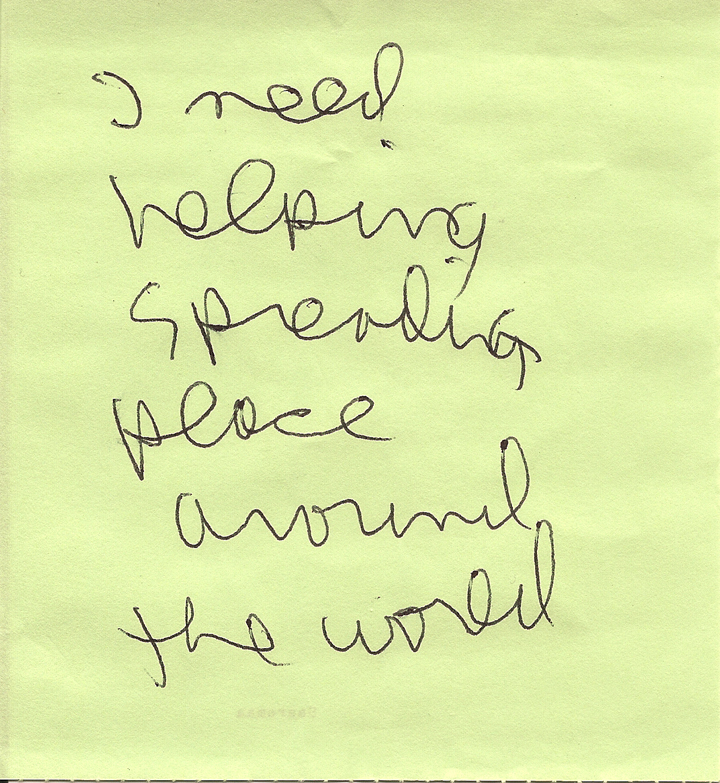 I need
helping
spreading
peace
around
the world